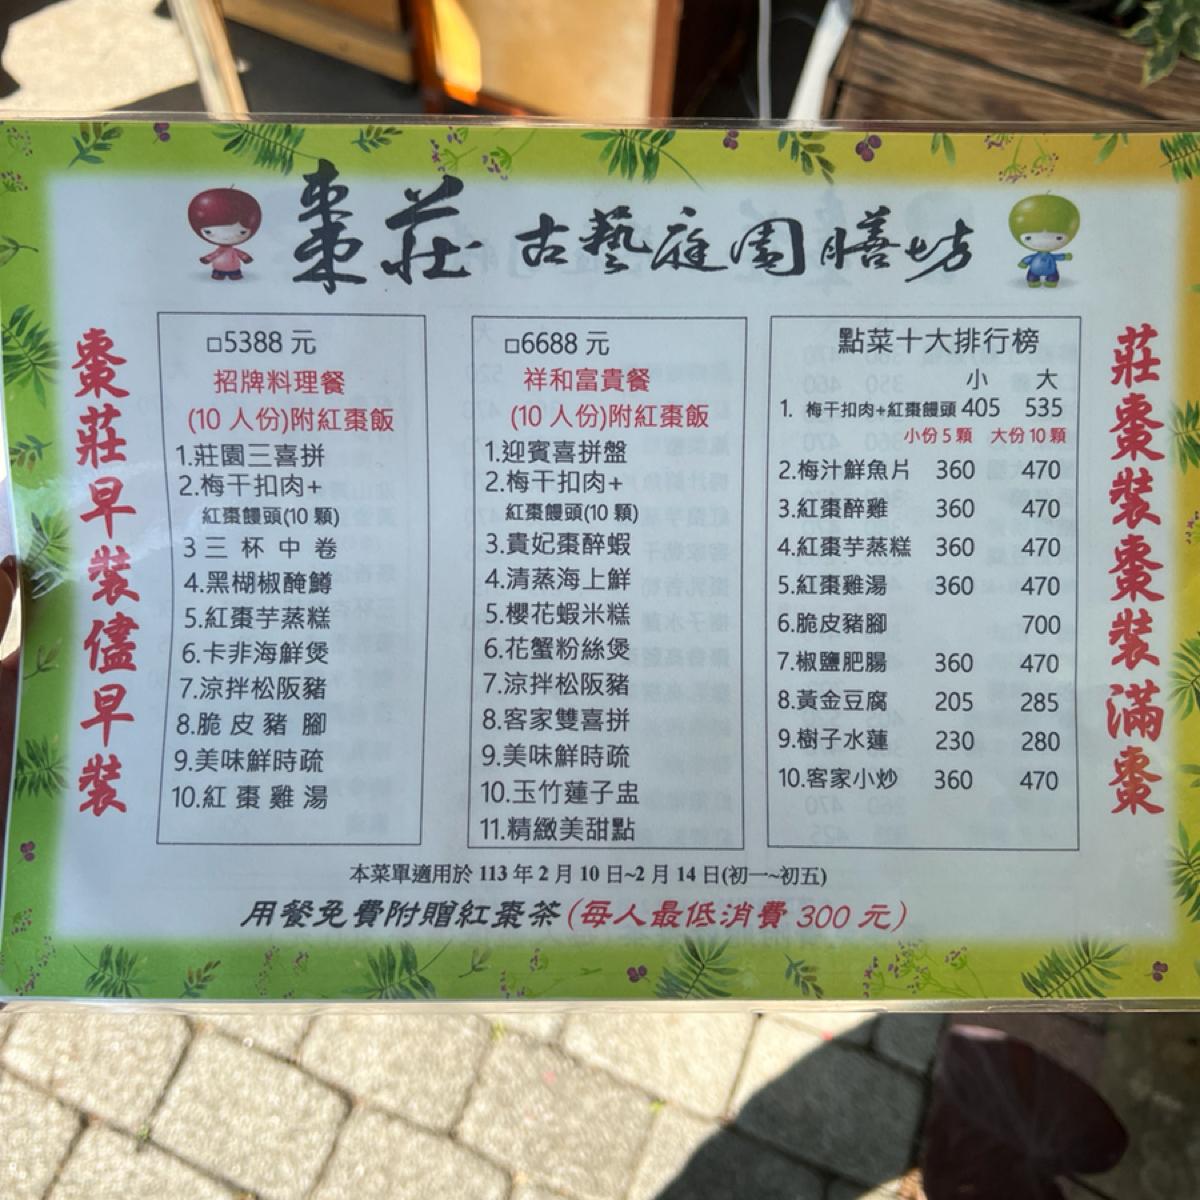 棗莊 古藝庭園膳坊
棗莊早裝儘早裝
□5388 元
招牌料理餐
(10 人份)附紅棗飯
1.莊園三喜拼
2.梅干扣肉+
紅棗饅頭(10 顆)
3 三 杯 中 卷
4.黑楜椒醃鱒
5.紅棗芋蒸糕
6.卡非海鮮煲
7.涼拌松阪豬
8.脆 皮 豬 腳
9.美味鮮時疏
10.紅 棗 雞 湯
□6688 元
祥和富貴餐
(10 人份)附紅棗飯
1.迎賓喜拼盤
2.梅干扣肉+
紅棗饅頭(10 顆)
3.貴妃棗醉蝦
4.清蒸海上鮮
5.櫻花蝦米糕
6.花蟹粉絲煲
7.涼拌松阪豬
8.客家雙喜拼
9.美味鮮時疏
10.玉竹蓮子盅
11.精緻美甜點
點菜十大排行榜
小 大
1. 梅干扣肉+紅棗饅頭 405 535
小份 5 顆 大份 10 顆
2.梅汁鮮魚片 360 470
3.紅棗醉雞 360 470
4.紅棗芋蒸糕 360 470
5.紅棗雞湯 360 470
6.脆皮豬腳 700
7.椒鹽肥腸 360 470
8.黃金豆腐 205 285
9.樹子水蓮 230 280
10.客家小炒 360 470
莊棗裝棗裝滿棗
本菜單適用於 113 年 2 月 10 日~2 月 14 日(初一~初五)
用餐免費附贈紅棗茶(每人最低消費 300 元)